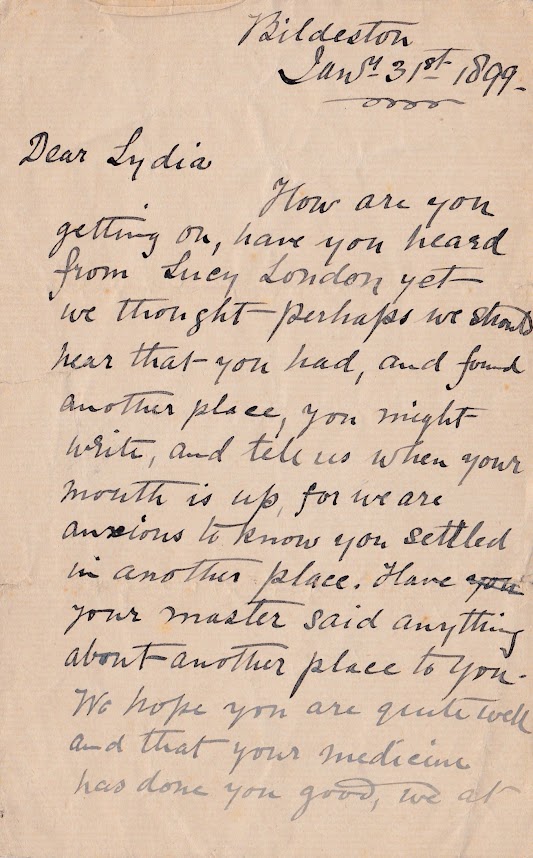 Bildeston
Jany 31st 1899.
Dear Lydia
How are you
getting on, have you heard
from Lucy London yet
we thought perhaps we should
hear that you had, and found
another place, you might
write, and tell us when your
month is up, for we are
anxious to know you settled
in another place. Have you
your master said anything
about another place to you.
We hope you are quite well
and that your medicine
has done you good, we at